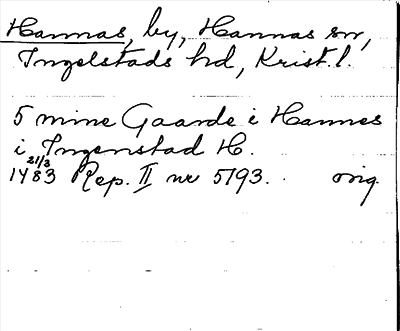 Hannas, by, Hannas sn,
Ingelstads hd, Krist. l.
5 mine Gaarde i Hannes
i Ingenstad H.
21/3
1483 Rep. II nr 5193. orig.